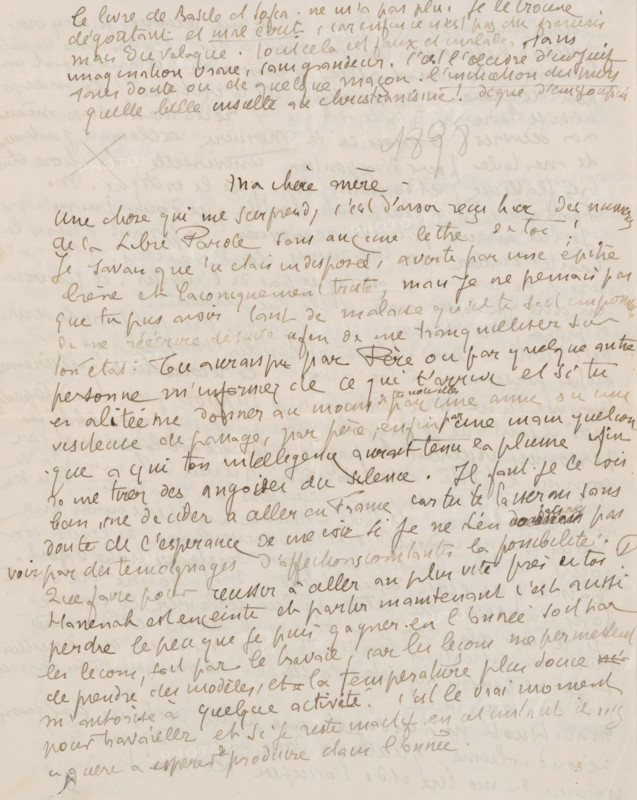 Le livre de Basile et Sofia ne m'a pas plu. Je le trouve
dégoutant et mal écrit, car enfin ce n'est pas du français
mais du valaque. Tout cela est faux et malade, sans
imagination vraie, sans grandeur. C'est l'œuvre d'un juif
sans doute ou de quelque maçon. l'
quelle belle insulte au christianisme! digne d'un
1898
Ma chère mère -
Une chose qui me surprend, c'est d'avoir reçu hier des numéros
de la Libre Parole sans aucune lettre de toi!
Je savais que tu étais indisposée, avertie par une épitre
brève et laconiquement triste, mais je ne pensais pas
que tu pus avoir tant de malaise qu'il te soit impossible
de me réécrire de suite afin de me tranquilliser sur
ton état. Tu aurais pu par Père ou par quelque autre
personne m'informer de ce qui t'arrive et si tu
es alitée me donner au moins de tes nouvelles par une amie ou une
visiteuse de passage, par père, enfin par une main quelcon
que à qui ton intelligence aurait tenu la plume afin
de me tirer des angoisses du silence. Il faut je le vois
bien me décider à aller en France car tu te lasseras sans
doute de l'espérance de me voir si je ne t'en donnais pas
voir par des témoignages d'affections constants la possibilité.
Que faire pour réussir à aller au plus vite près de toi.
Hanenah est enceinte et partir maintenant c'est aussi
perdre le peu que je puis gagner en l'année soit par
les leçons, soit par le travail, car les leçons me permettent
de prendre des modèles, et la température plus douce
m'autorise à quelque activité. C'est le vrai moment
pour travailler et si je reste inactif en cet instant il n'y
a guère à espérer de produire dans l'année.